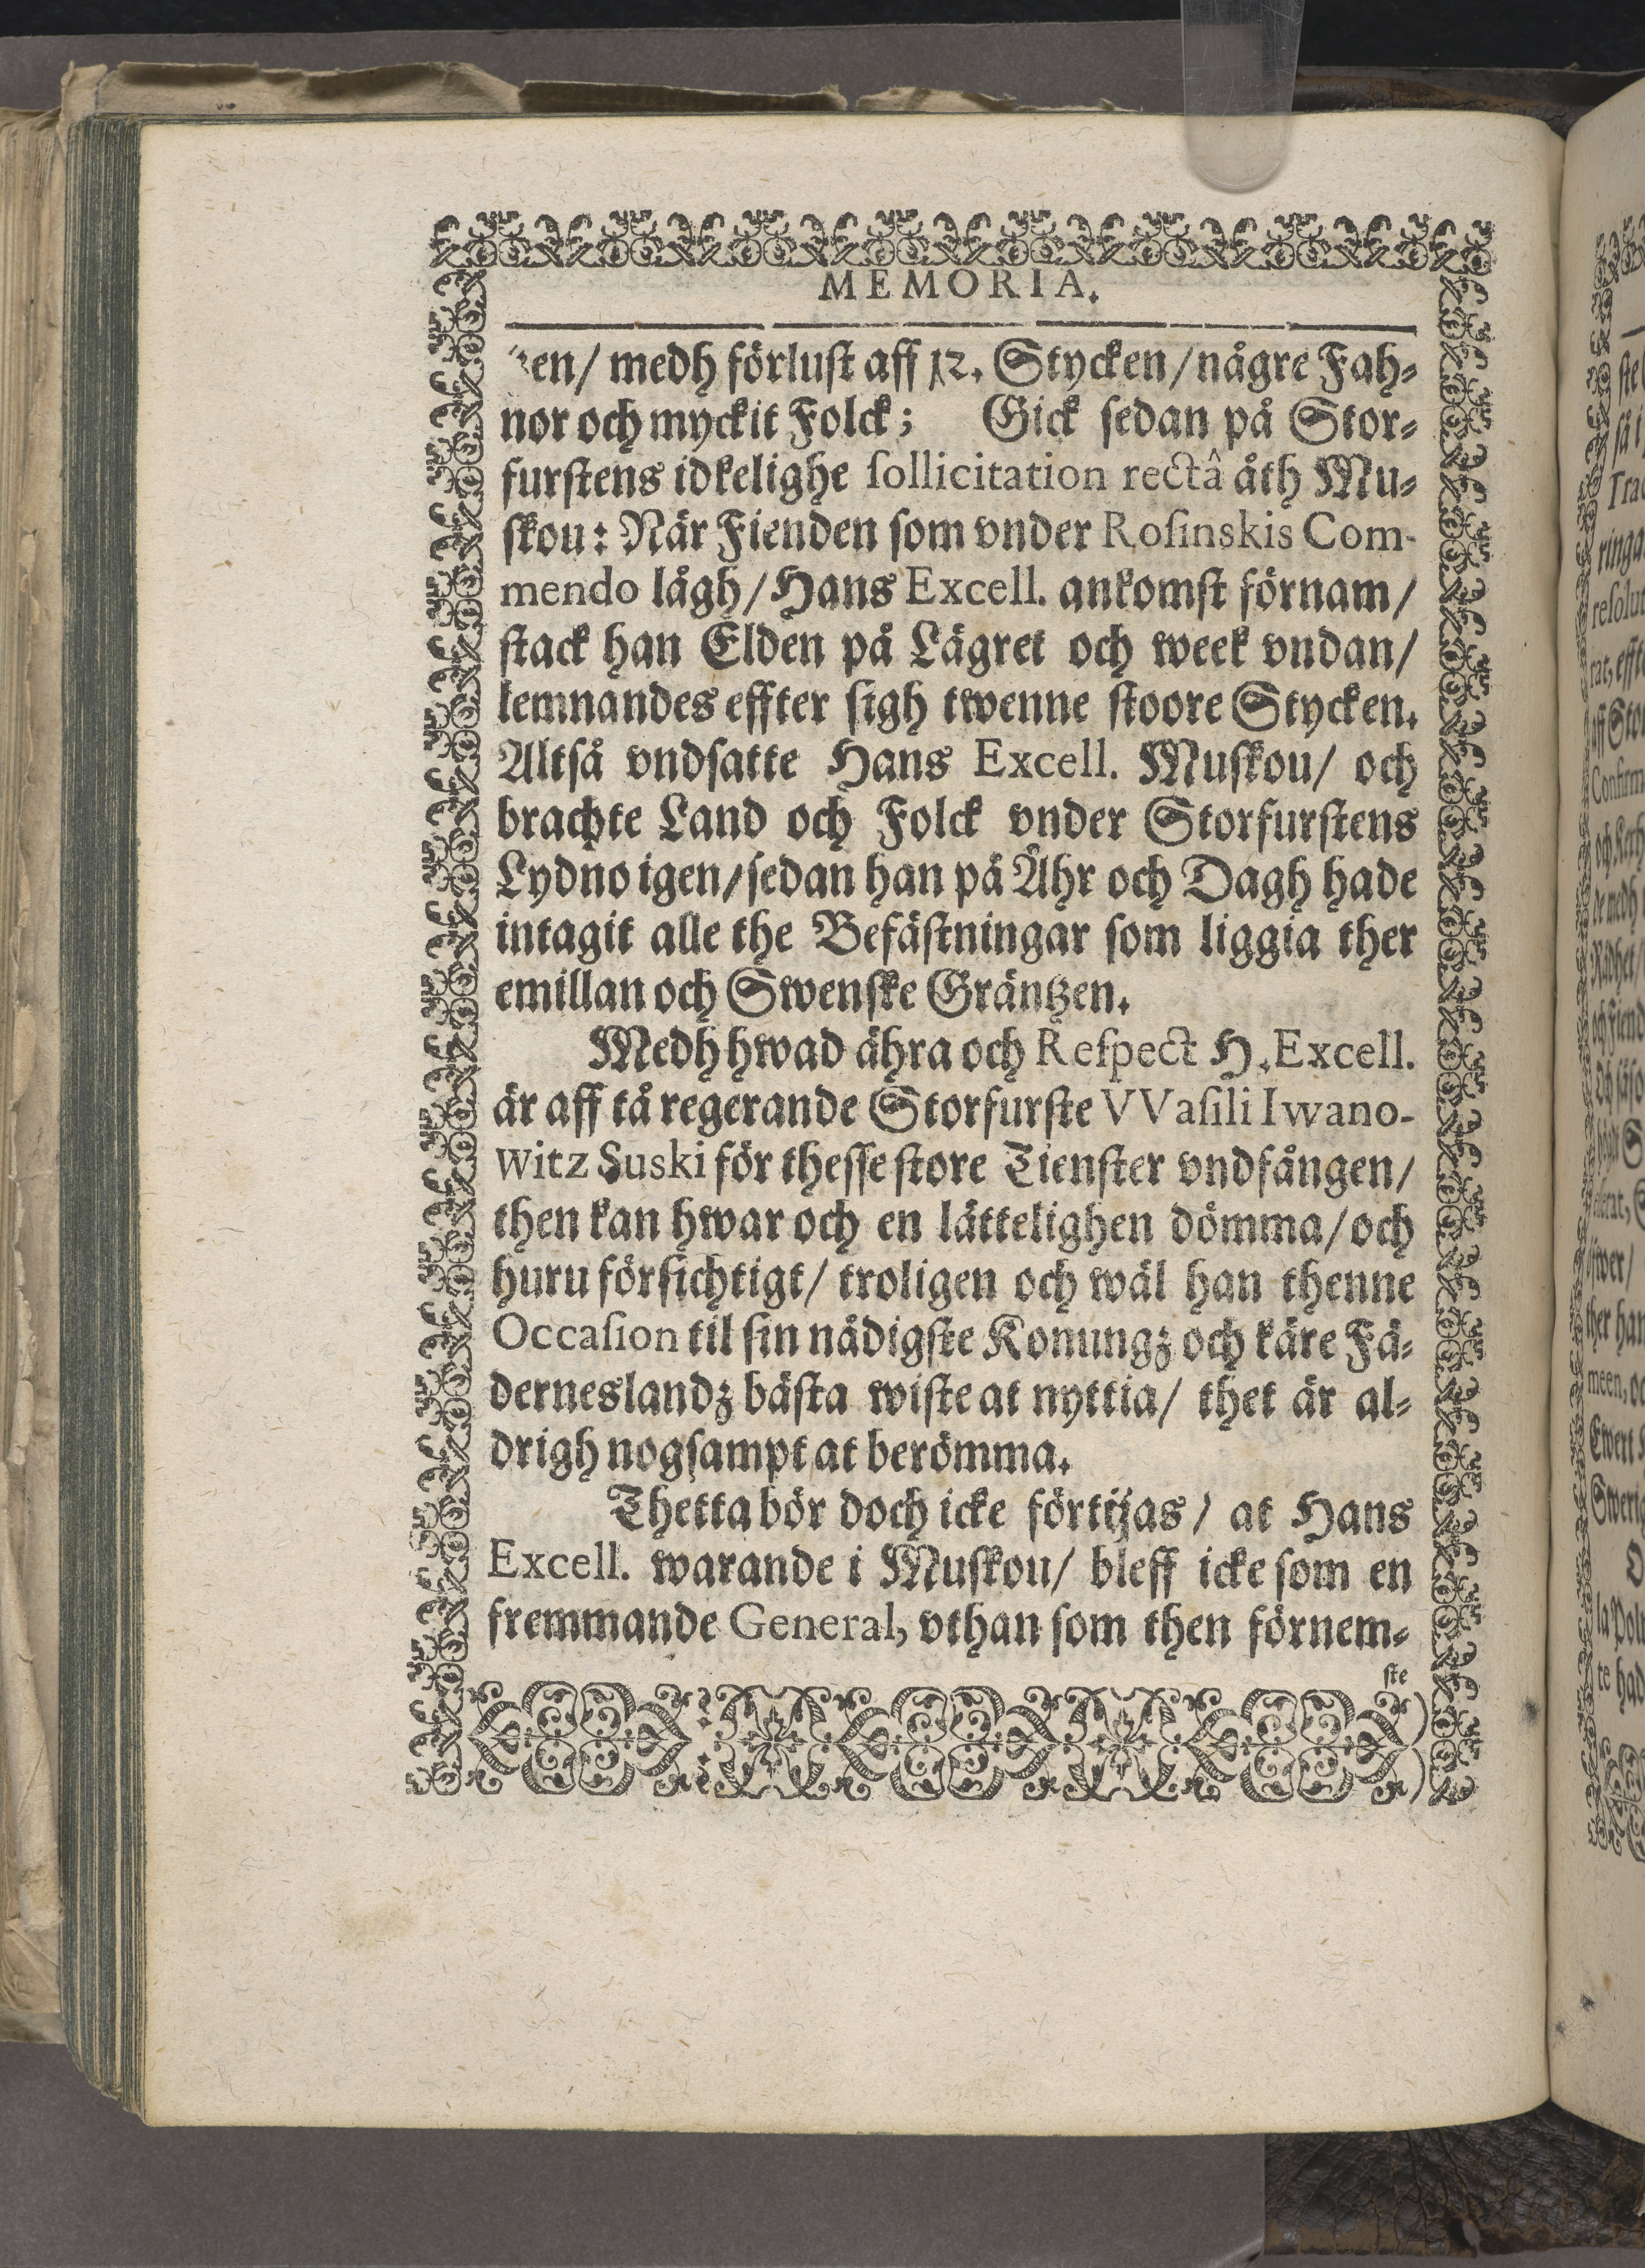 MEMORIA.
en/ medh förluſt aff 12. Stycken/ någre Fah⸗
nor och myckit Folck; Gick ſedan på Stor⸗
furſtens idkelighe ſollicitation rectâ åth Mu⸗
ſkou: När Fienden ſom vnder Roſinskis Com-
mendo lågh/ Hans Excell. ankomſt förnam/
ſtack han Elden på Lägret och week vndan/
lemnandes effter ſigh twenne ſtoore Stycken.
Altſå vndſatte Hans Excell. Muſkou/ och
brachte Land och Folck vnder Storfurſtens
Lydno igen/ ſedan han på Åhr och Dagh hade
intagit alle the Befäſtningar ſom liggia ther
emillan och Swenſke Gräntzen.
Medh hwad ähra och Reſpect H. Excell.
är aff tå regerande Storfurſte VVaſili Iwano-
witz Suski för theſſe ſtore Tienſter vndfången/
then kan hwar och en lättelighen dömma/ och
huru förſichtigt/ troligen och wäl han thenne
Occaſion til ſin nådigſte Konungz och käre Fä⸗
derneslandz bäſta wiſte at nyttia/ thet är al⸗
drigh nogſampt at berömma.
Thetta bör doch icke förtijas/ at Hans
Excell. warande i Muſkou/ bleff icke ſom en
fremmande General, vthan ſom then förnem⸗
ſte